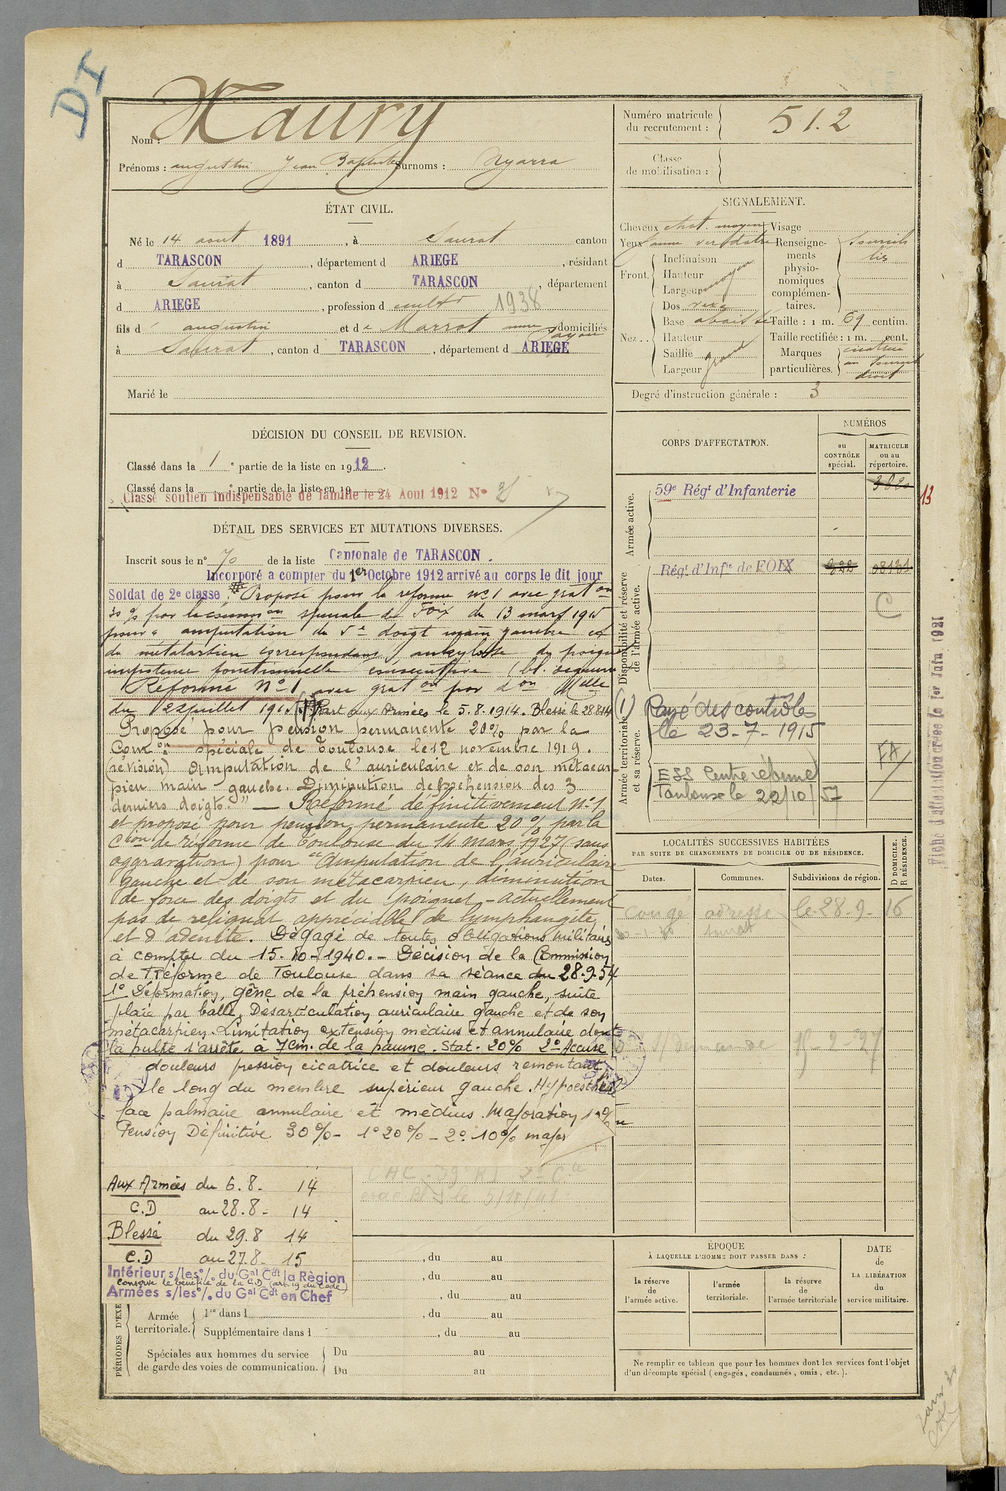 DI
Nom : Maury
Prénoms : augustin Jean Baptiste Surnoms : Nyarra
ÉTAT CIVIL.
Né le 14 aout 1891, à Saurat canton
d TARASCON, département d ARIEGE, résidant
à Saurat, canton d TARASCON, département
d ARIEGE, profession d cultr 1938
fils d' augustin et de Marrot domiciliés
à Saurat, canton d TARASCON, département d ARIEGE
Marié le
DÉCISION DU CONSEIL DE REVISION.
Classé dans la 1e partie de la liste en 1912.
Classé dans la e partie de la liste en 19
Classé soutien indispensable de famille le 24 Aout 1912 N°
DÉTAIL DES SERVICES ET MUTATIONS DIVERSES.
Inscrit sous le n° 70 de la liste Cantonale de TARASCON.
Incorporé a compter du 1er Octobre 1912 arrivé au corps le dit jour
Soldat de 2e classe. Proposé pour la reforme n°1 avec graton
par la common spéciale de Foix du 13 mars 1915
pour amputation du 5e doigt main gauche et
du metatarcien correspondant, ankylose du poignet
impotence fonctionnelle consécutive
Réformé N°1 avec graton por Don Melle
du 22 juillet 1915 (1) Part aux Armées le 5.8.1914. Blessé le 28.8.14
Proposé pour pension permanente 20% par la
Comon spéciale de Toulouse le 12 novembre 1919.
(révision) Amputation de l'auriculaire et de son métacar
pien main gauche. Diminution de préhension des 3
derniers doigts." — Réformé définitivement N°1
et proposé pour pension permanente 20% par la
Cion de réforme de Toulouse du 14 mars 1927 (sans
aggravation) pour "Amputation de l'auriculaire
gauche et de son métacarpien, diminution
de force des doigts et du poignet - actuellement
pas de reliquat appréciable de lymphangite
et d'adenite. Dégagé de toutes obligations militaires
à compter du 15-10-1940. - Décision de la Commission
de Réforme de Toulouse dans sa séance du 28-9-54
1° Déformation, gêne de la préhension main gauche, suite
plaie par balle, Désarticulation auriculaire gauche et de son
métacarpien. Limitation extension médius et annulaire dont
la pulpe s'arrête à 7cm. de la paume. Stat. 20% 2° Accuse
douleurs pression cicatrice et douleurs remontant
le long du membre supérieur gauche. Hypoesthésie
face palmaire annulaire et médius. Majoration 10%
Pension Définitive 30% - 1° 20% - 2° 10% major
Aux Armées du 6.8- 14
C.D au 28.8- 14
Blessé du 29.8 14
C.D au 27.8- 15
Intérieur s/les °/. du Gal Cdt la Région
conserve le bénéfice de la C.D (art. 19 du Code)
Armées s/les °/. du Gal Cdt en Chef
, du au
, du au
, du au
PÉRIODES D'EXE
Armée territoriale.
1re dans l , du au
Supplémentaire dans l , du au
Spéciales aux hommes du service
de garde des voies de communication.
Du au
Du au
Numéro matricule
du recrutement : 512
Classe
de mobilisation :
SIGNALEMENT.
Cheveux chat. moyen
Yeux jaune verdatre
Front. Inclinaison
Hauteur moyen
Largeur
Nez.. Dos rexe
Base abaissée
Hauteur
Saillie grand
Largeur
Visage
Renseigne-
ments
physio-
nomiques
complémen-
taires.
Sourcils
liés
Taille : 1 m. 69 centim.
Taille rectifiée : 1 m. cent.
Marques
particulières. cicatrice
au sourcil
droit
Degré d'instruction générale : 3
CORPS D'AFFECTATION.
NUMÉROS
au
CONTRÔLE
spécial.
MATRICULE
ou au
répertoire.
Armée active.
59e Régt d'Infanterie
13
Disponibilité et réserve
de l'armée active.
Régt d'Infie de FOIX
C
Armée territoriale
et sa réserve.
(1) Rayé des contrôles
le 23-7-1915
FA
ESS Centre réformé
Toulouse le 22/10/57
LOCALITÉS SUCCESSIVES HABITÉES
PAR SUITE DE CHANGEMENTS DE DOMICILE OU DE RÉSIDENCE.
Dates. Communes. Subdivisions de région.
D DOMICILE.
R RÉSIDENCE.
Congé adresse le 28-9-16
s/demande 15-2-27
ÉPOQUE
À LAQUELLE L'HOMME DOIT PASSER DANS :
la réserve
de
l'armée active.
l'armée
territoriale.
la réserve
de
l'armée territoriale
DATE
de
LA LIBÉRATION
du
service militaire.
Ne remplir ce tableau que pour les hommes dont les services font l'objet
d'un décompte spécial (engagés, condamnés, omis, etc.).